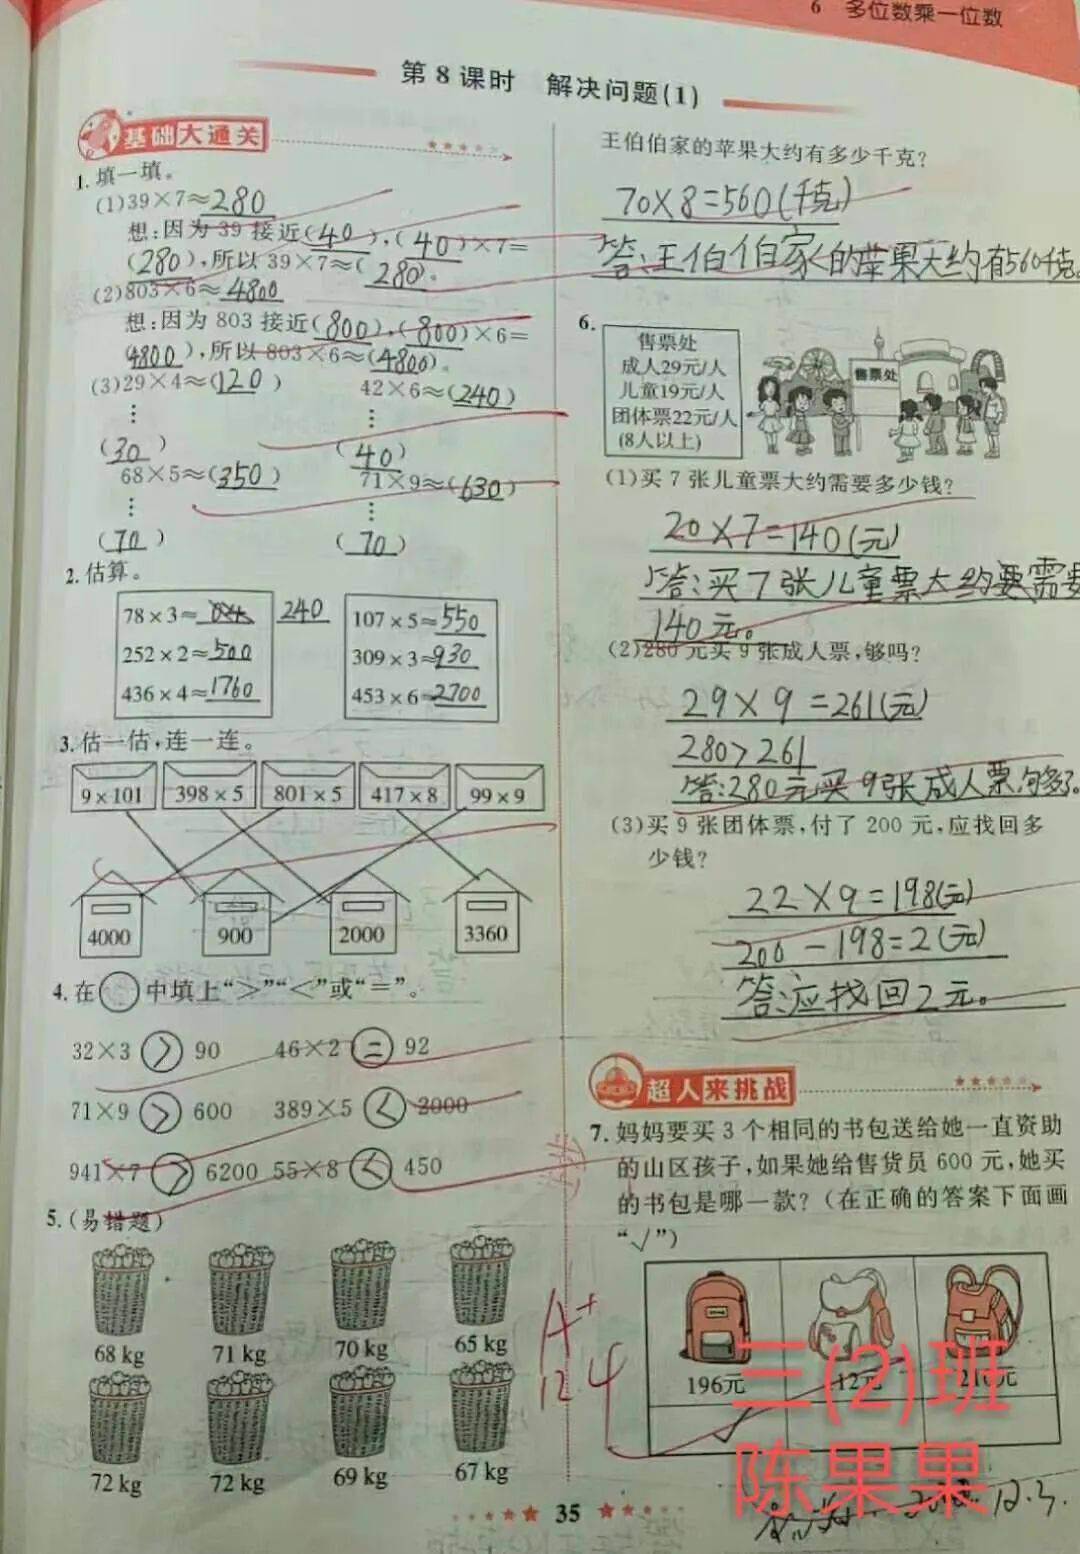 6 多位数乘一位数
第8课时 解决问题(1)
基础大通关
1.填一填。
(1)39×7≈280
想:因为39接近(40),(40)×7=
(280),所以39×7≈(280)。
(2)803×6≈4800
想:因为803接近(800),(800)×6=
(4800),所以803×6≈(4800)。
(3)29×4≈(120) 42×6≈(240)
⋮ ⋮
(30) (40)
68×5≈(350) 71×9≈(630)
⋮ ⋮
(70) (70)
2.估算。
78×3≈ 240 107×5≈550
252×2≈500 309×3≈930
436×4≈1760 453×6≈2700
3.估一估,连一连。
9×101 398×5 801×5 417×8 99×9
4000 900 2000 3360
4.在○中填上“>”“<”或“=”。
32×3 > 90 46×2 = 92
71×9 > 600 389×5 < 2000
941×7 > 6200 55×8 < 450
5.(易错题)
68 kg 71 kg 70 kg 65 kg
72 kg 72 kg 69 kg 67 kg
王伯伯家的苹果大约有多少千克?
70×8=560(千克)
答:王伯伯家的苹果大约有560千克。
6.
售票处
成人29元/人
儿童19元/人
团体票22元/人
(8人以上)
售票处
(1)买7张儿童票大约需要多少钱?
20×7=140(元)
答:买7张儿童票大约需要
140元。
(2)280元买9张成人票,够吗?
29×9=261(元)
280>261
答:280元买9张成人票够了。
(3)买9张团体票,付了200元,应找回多
少钱?
22×9=198(元)
200-198=2(元)
答:应找回2元。
超人来挑战
7.妈妈要买3个相同的书包送给她一直资助
的山区孩子,如果她给售货员600元,她买
的书包是哪一款?(在正确的答案下面画
“√”)
196元 12元 216元
√
A+
12.4
三(2)班
陈果果
12.3.
35